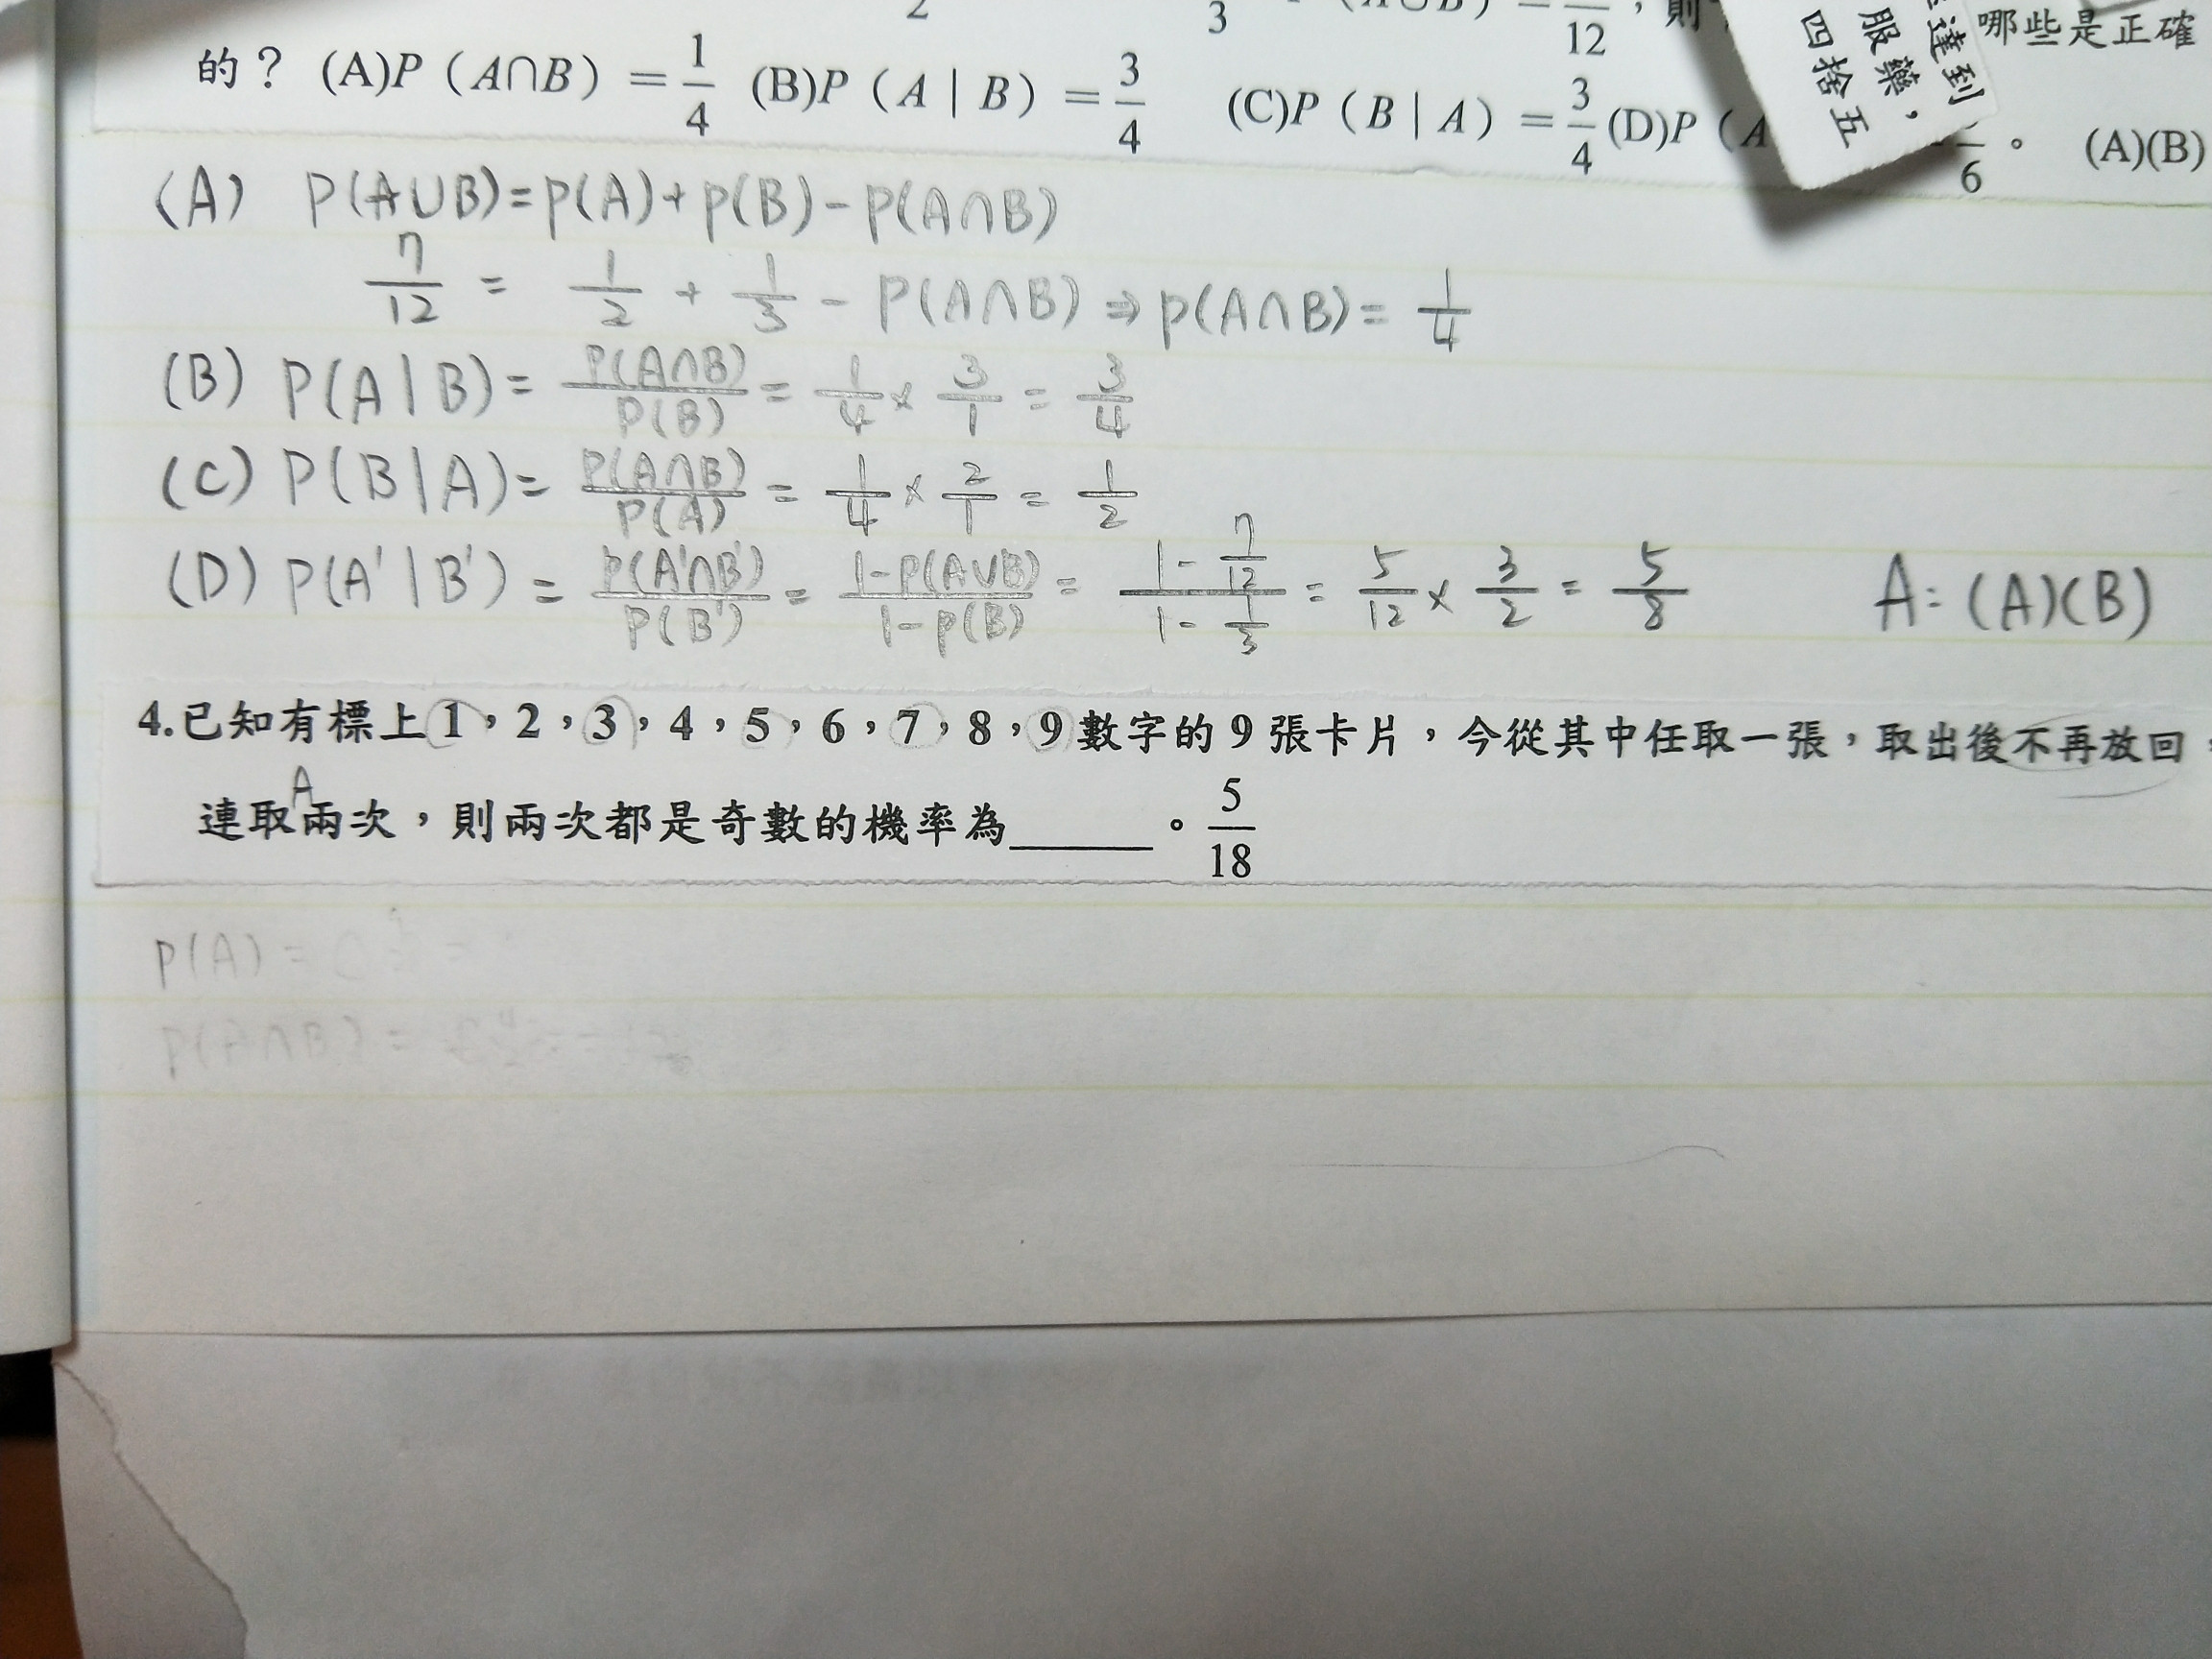 2 3 12 ，則 哪些是正確
達到
服藥，
四捨五
的？ (A)P（A∩B）＝1/4 (B)P（A｜B）＝3/4 (C)P（B｜A）＝3/4 (D)P（A 6 。 (A)(B)
(A) P(A∪B)=P(A)+P(B)-P(A∩B)
7/12 = 1/2 + 1/3 - P(A∩B) ⇒ P(A∩B)= 1/4
(B) P(A|B)= P(A∩B)/P(B) = 1/4 × 3/1 = 3/4
(C) P(B|A)= P(A∩B)/P(A) = 1/4 × 2/1 = 1/2
(D) P(A'|B') = P(A'∩B')/P(B') = 1-P(A∪B)/1-P(B) = 1-7/12/1-1/3 = 5/12 × 3/2 = 5/8 A=(A)(B)
4.已知有標上 1，2，3，4，5，6，7，8，9 數字的 9 張卡片，今從其中任取一張，取出後不再放回，
A
連取兩次，則兩次都是奇數的機率為______。5/18
P(A) =
P(A∩B) =